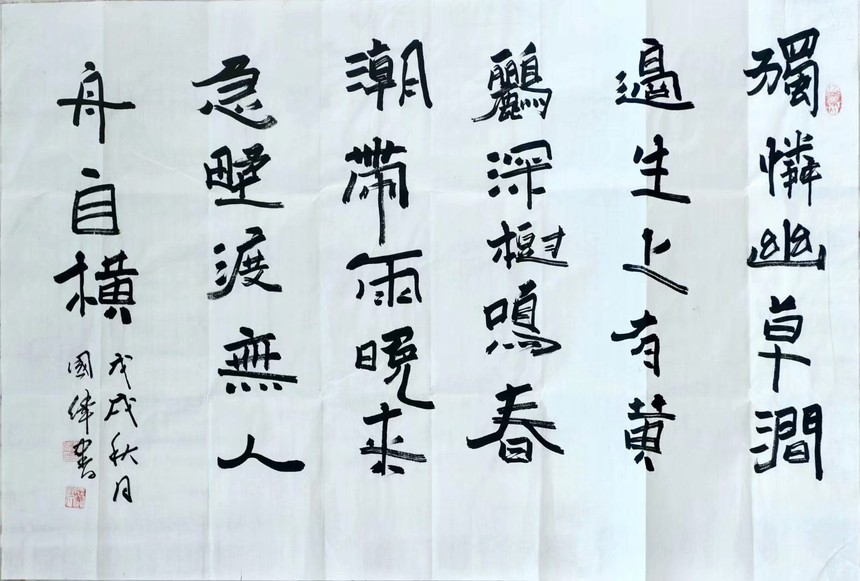 獨憐幽草澗
邊生上有黄
鸝深樹鳴春
潮帶雨晚來
急野渡無人
舟自橫
戊戌秋月
國偉書